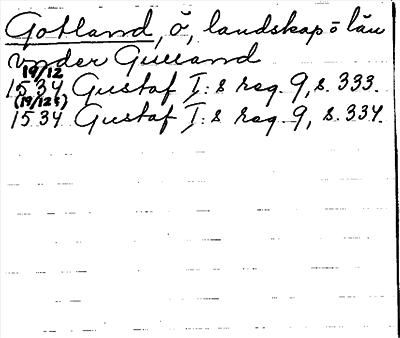 Gotland, ö, landskap o län
under Gulland
19/12
1534 Gustaf I:s reg. 9, s. 333.
(19/12 ?)
1534 Gustaf I:s reg. 9, s. 334.